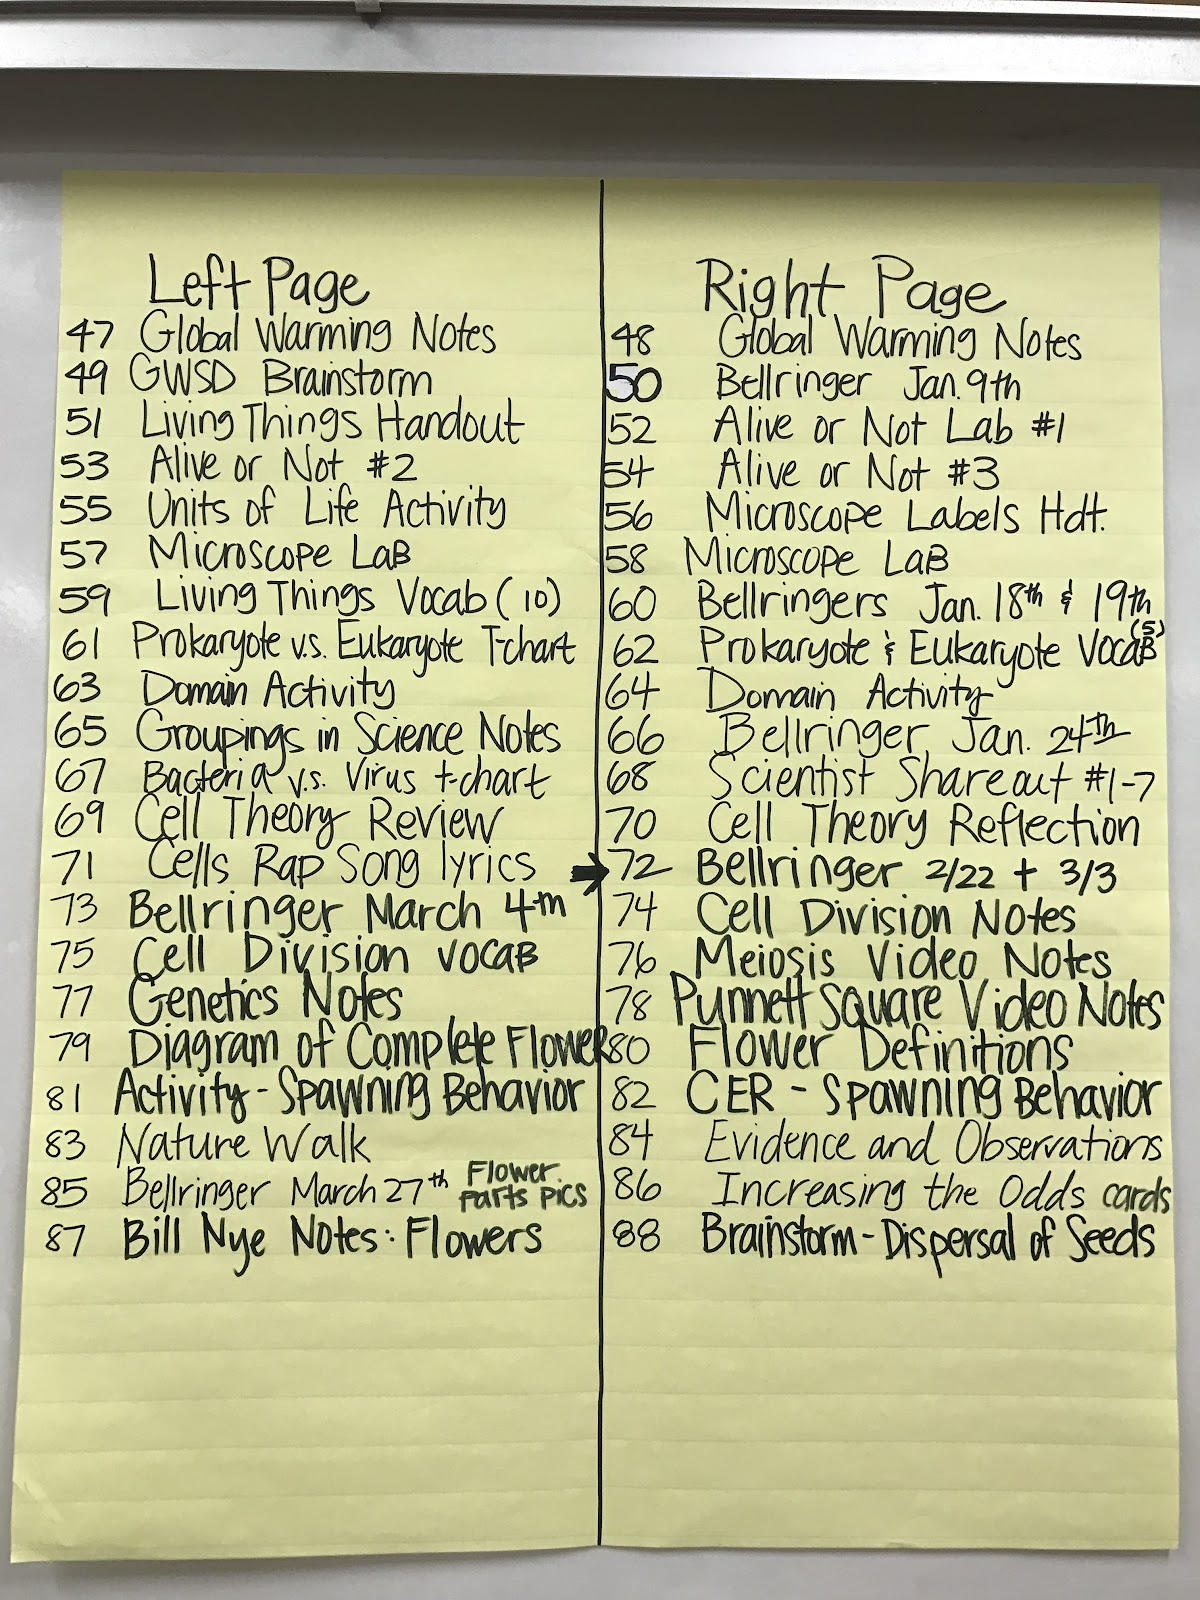 Left Page
47 Global Warming Notes
49 GWSD Brainstorm
51 Living Things Handout
53 Alive or Not #2
55 Units of Life Activity
57 Microscope Lab
59 Living Things Vocab (10)
61 Prokaryote v.s. Eukaryote T-chart
63 Domain Activity
65 Groupings in Science Notes
67 Bacteria v.s. Virus t-chart
69 Cell Theory Review
71 Cells Rap Song lyrics
73 Bellringer March 4th
75 Cell Division vocab
77 Genetics Notes
79 Diagram of Complete Flower
81 Activity - Spawning Behavior
83 Nature Walk
85 Bellringer March 27th Flower parts pics
87 Bill Nye Notes: Flowers
Right Page
48 Global Warming Notes
50 Bellringer Jan. 9th
52 Alive or Not Lab #1
54 Alive or Not #3
56 Microscope Labels Hdt.
58 Microscope Lab
60 Bellringers Jan. 18th & 19th
62 Prokaryote & Eukaryote Vocab (5)
64 Domain Activity
66 Bellringer Jan. 24th
68 Scientist Shareout #1-7
70 Cell Theory Reflection
→ 72 Bellringer 2/22 + 3/3
74 Cell Division Notes
76 Meiosis Video Notes
78 Punnett Square Video Notes
80 Flower Definitions
82 CER - Spawning Behavior
84 Evidence and Observations
86 Increasing the Odds cards
88 Brainstorm - Dispersal of Seeds